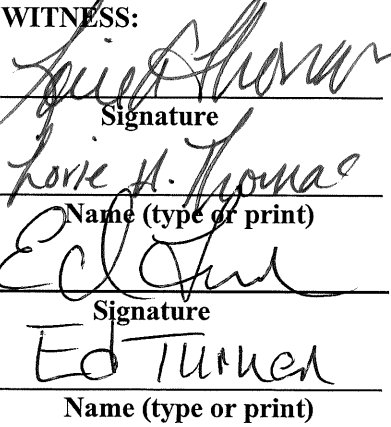 WITNESS:
Lorie A Thomas
Signature
Lorie A. Thomas
Name (type or print)
Ed Turner
Signature
Ed Turner
Name (type or print)